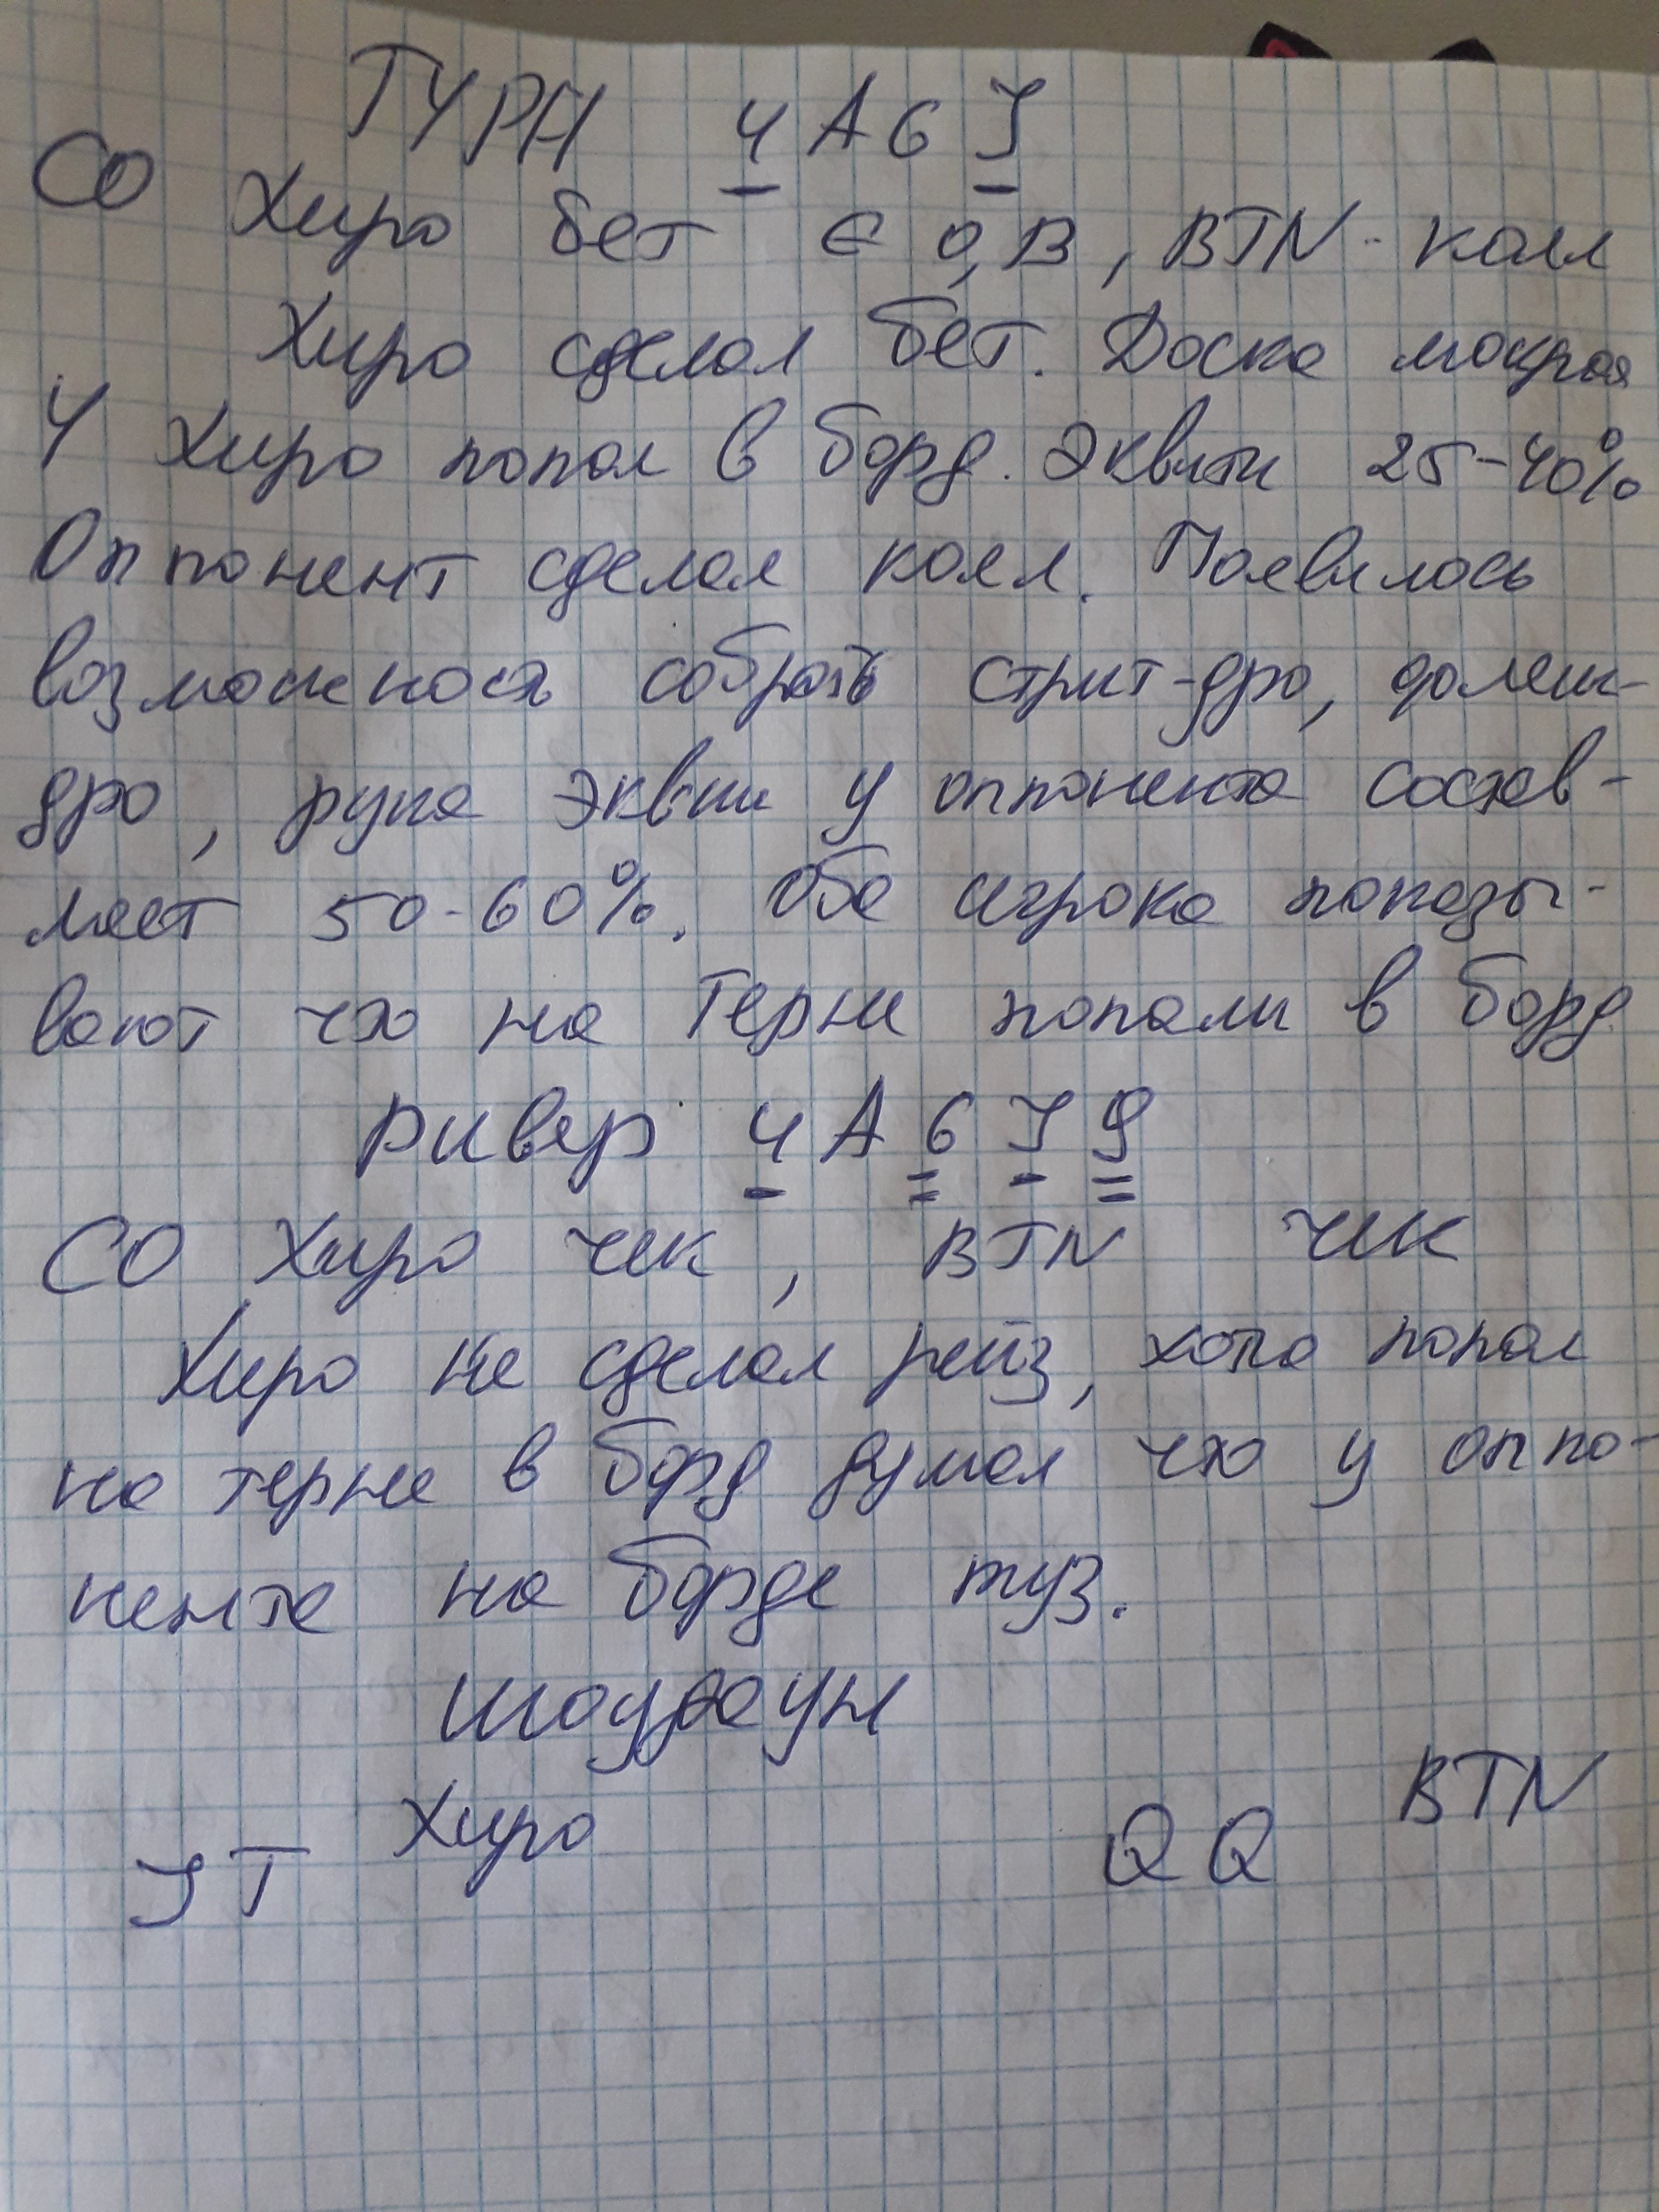 ТУРН 4 A 6 J
CO Хиро бет € 0,В, BTN - колл
Хиро сделал бет. Доска мокрая
У Хиро попал в борд. Эквити 25-40%
Оппонент сделал колл. Появилось
возможность собрать стрит-дро,
дро, рука эквити у оппонента состав-
ляет 50-60%. Оба игрока показы-
вают что на терне попали в борд
Ривер 4 A 6 J 9
CO Хиро чек, BTN чек
Хиро не сделал рейз, хотя попал
на терне в борд думал что у оппо-
нента на борде туз.
Шоудаун
Хиро BTN
J T Q Q